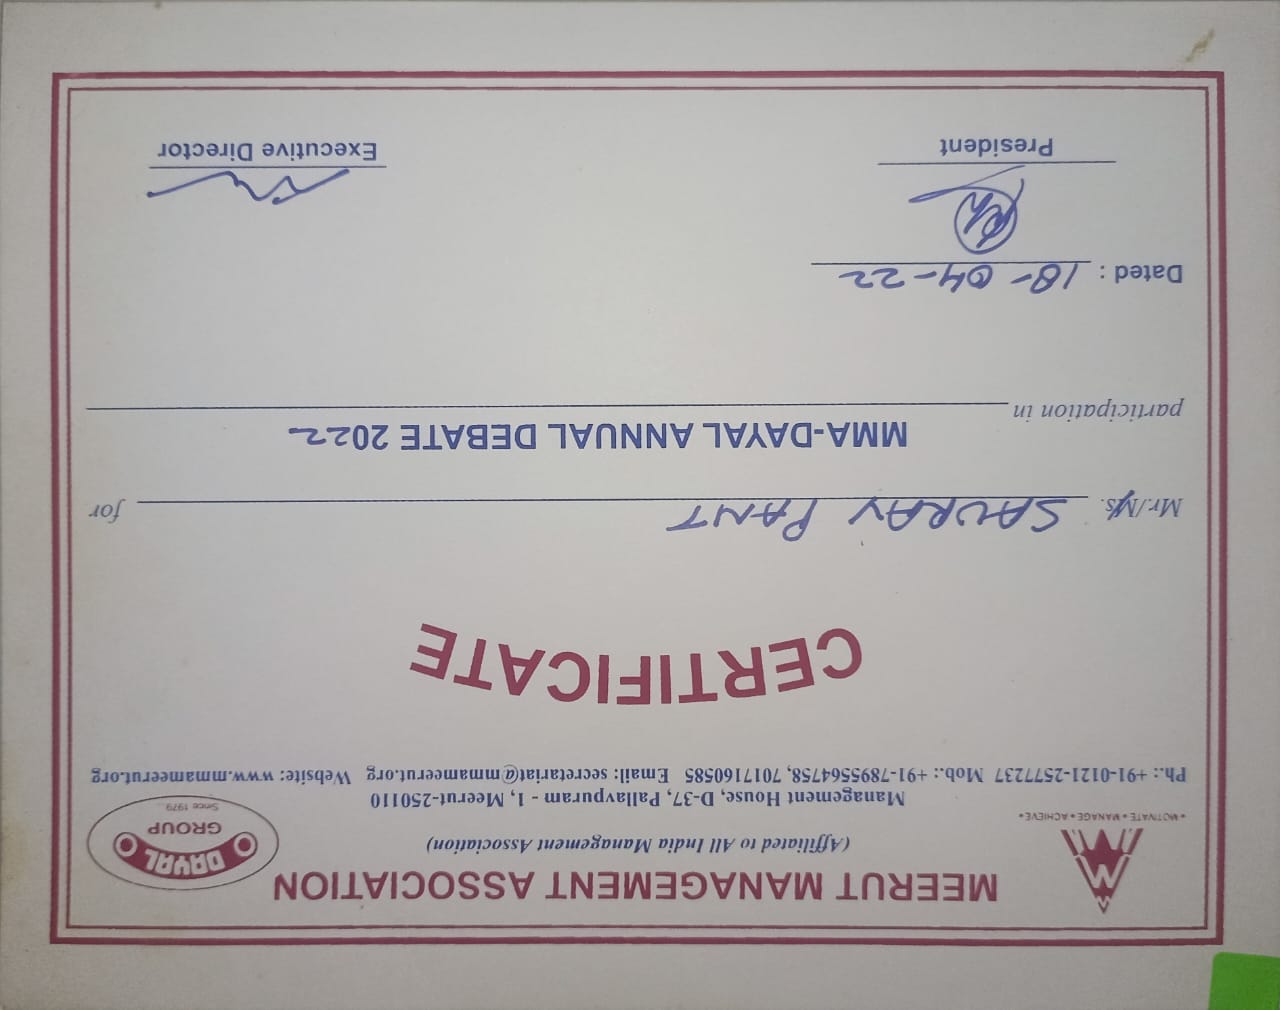 MEERUT MANAGEMENT ASSOCIATION
(Affiliated to All India Management Association)
• MOTIVATE • MANAGE • ACHIEVE •
DAYAL
GROUP
Since 1979...
Management House, D-37, Pallavpuram - 1, Meerut-250110
Ph.: +91-0121-2577237 Mob.: +91-7895564758, 7017160585 Email: secretariat@mmameerut.org Website: www.mmameerut.org
CERTIFICATE
Mr./Ms. SAURAV PANT for
participation in MMA-DAYAL ANNUAL DEBATE 2022
Dated : 18-04-22
President
Executive Director